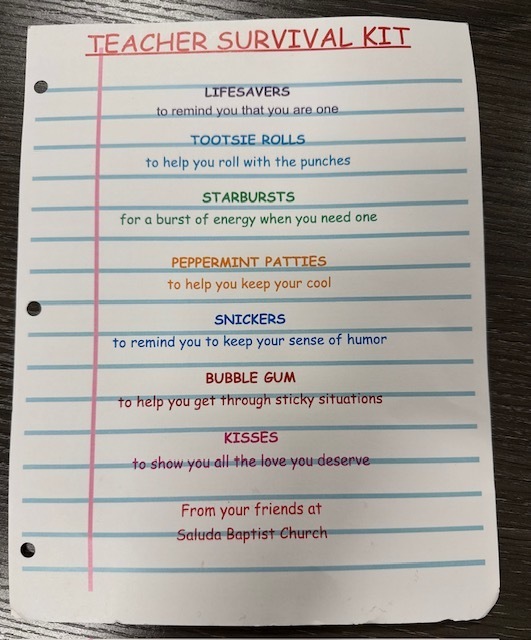 TEACHER SURVIVAL KIT
LIFESAVERS
to remind you that you are one
TOOTSIE ROLLS
to help you roll with the punches
STARBURSTS
for a burst of energy when you need one
PEPPERMINT PATTIES
to help you keep your cool
SNICKERS
to remind you to keep your sense of humor
BUBBLE GUM
to help you get through sticky situations
KISSES
to show you all the love you deserve
From your friends at
Saluda Baptist Church